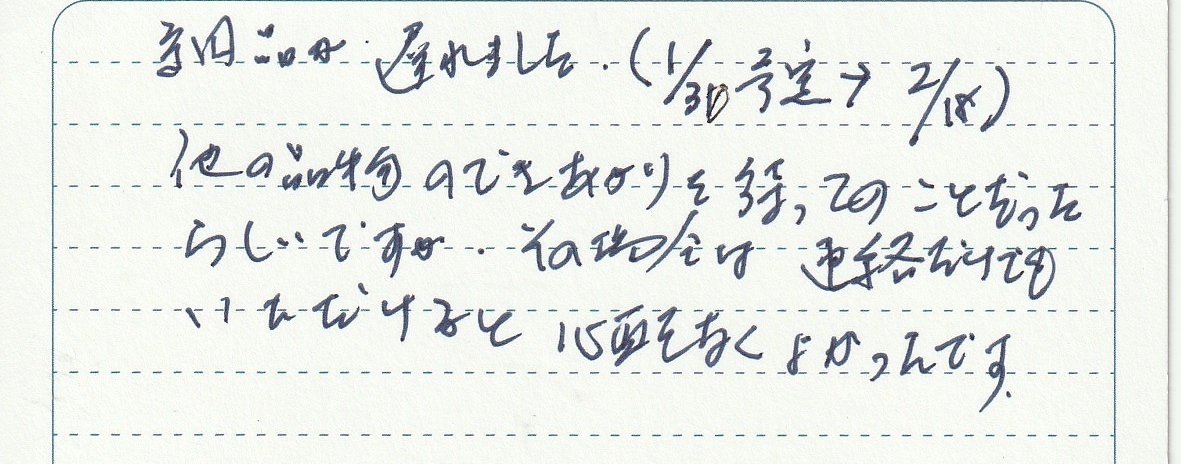 納品が遅れました.(1/30予定→2/18)
他の品物のできあがりを待ってのことだった
らしいですが.その場合は連絡だけでも
いただけると心配なくよかったんです.